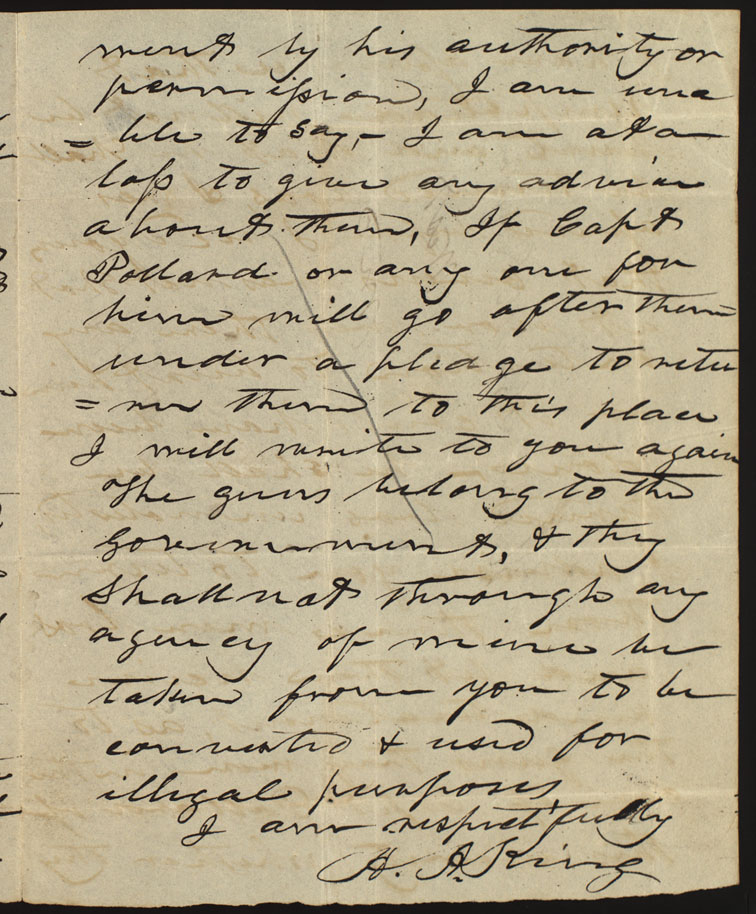 ment by his authority or
permission, I am una
=ble to say,- I am at a
loss to give any advice
about them, If Capt
Pollard or any one for
him will go after them
under a pledge to retu
=rn them to this place
I will write to you again
The guns belong to the
Government, & they
shall not through any
agency of mine be
taken from you to be
converted & used for
illegal purposes
I am respectfully
A. A. King